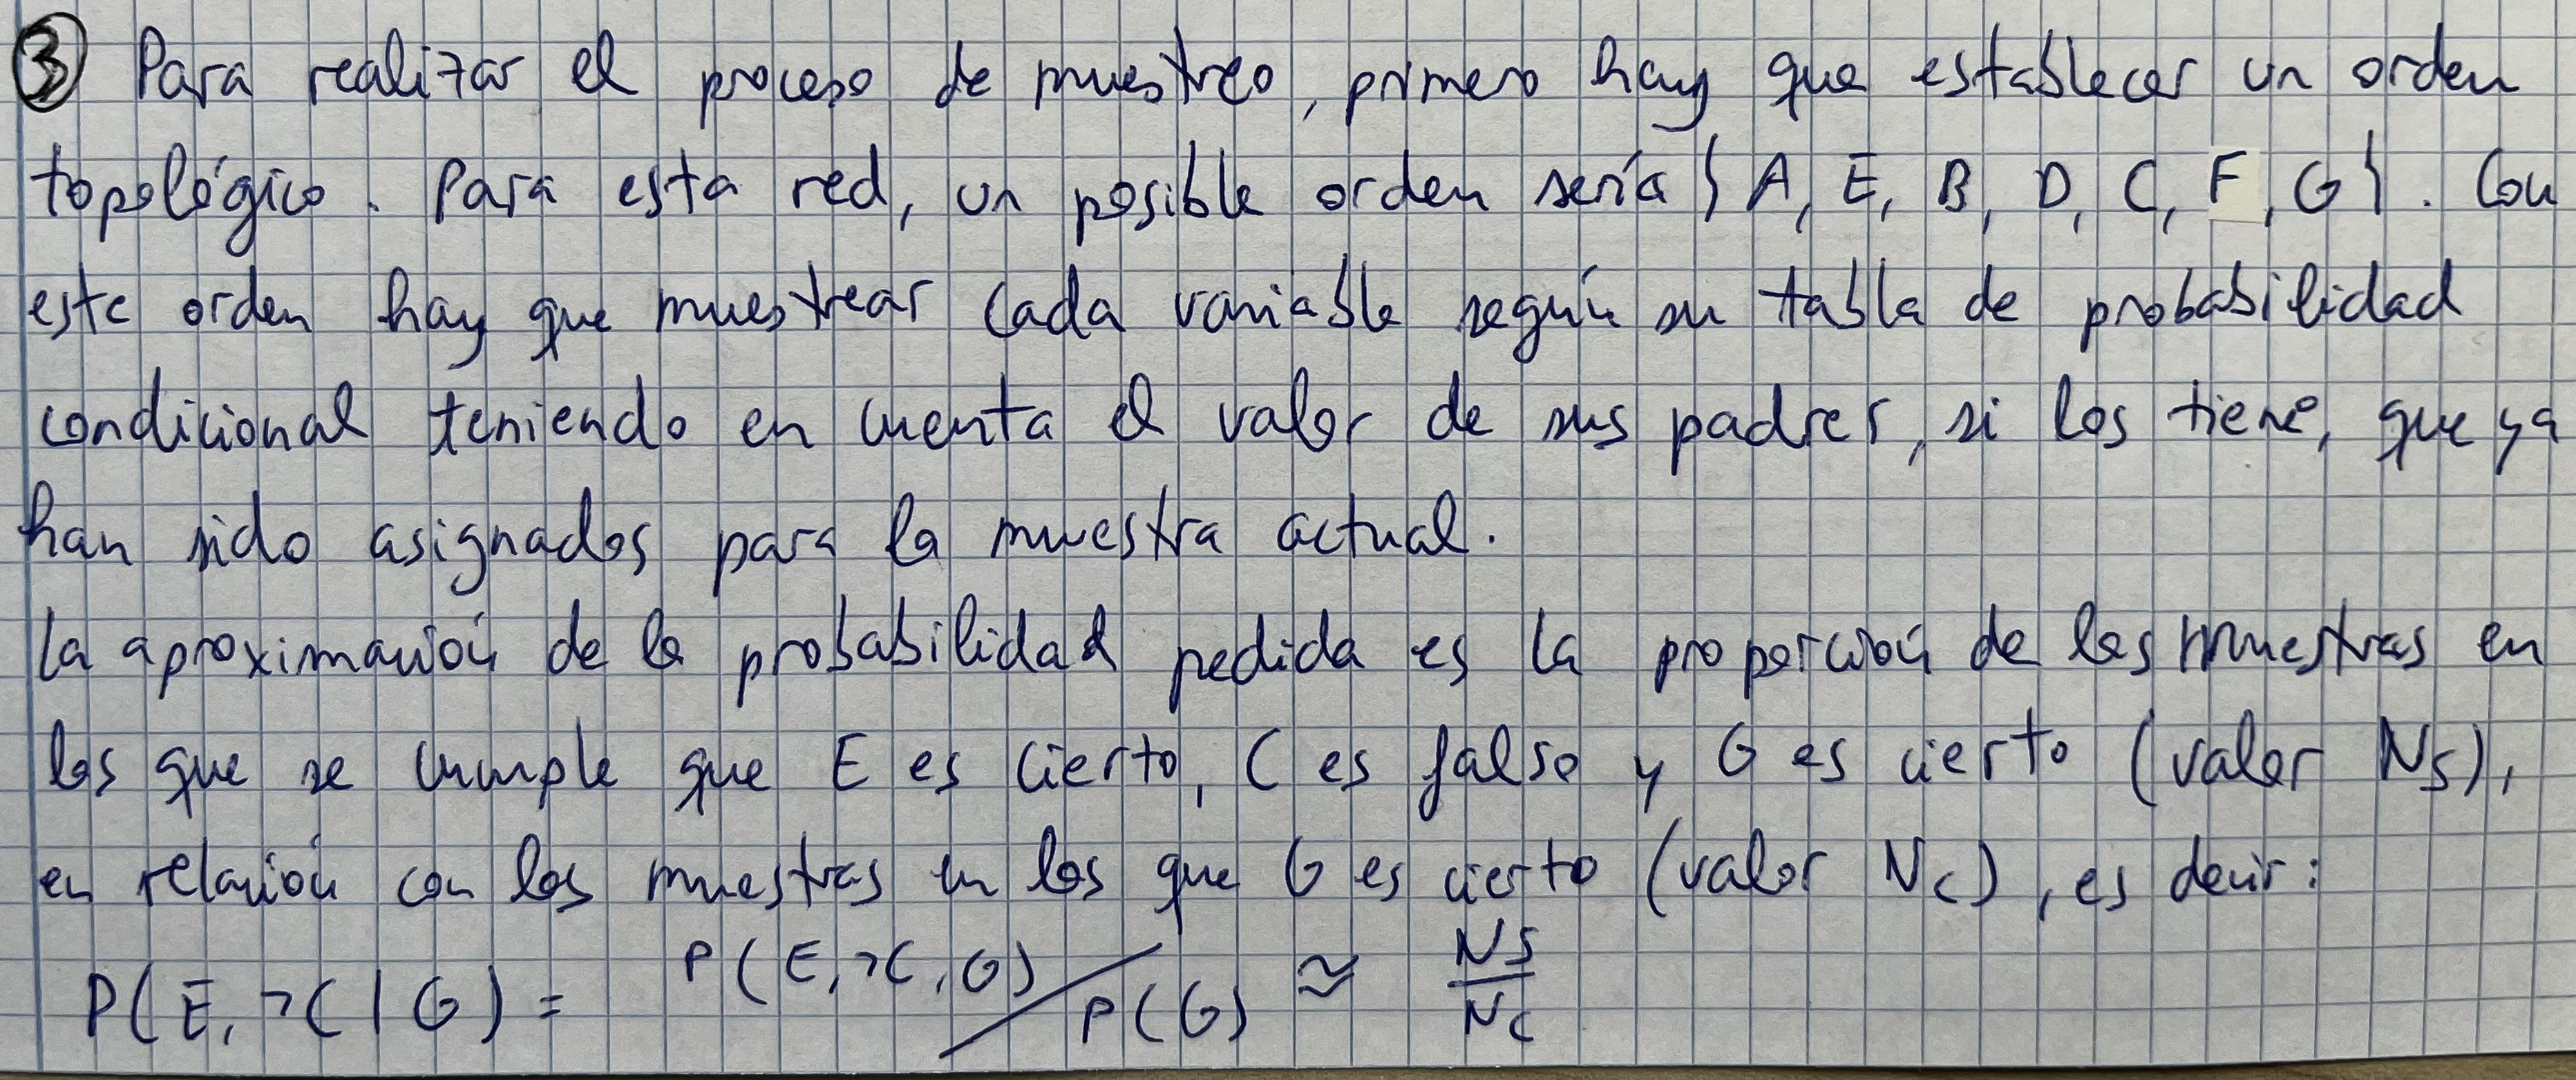 ③ Para realizar el proceso de muestreo, primero hay que establecer un orden
topológico. Para esta red, un posible orden sería {A, E, B, D, C, F, G}. Con
este orden hay que muestrear cada variable según su tabla de probabilidad
condicional teniendo en cuenta el valor de sus padres, si los tiene, que ya
han sido asignados para la muestra actual.
La aproximación de la probabilidad pedida es la proporción de las muestras en
las que se cumple que E es cierto, C es falso y G es cierto (valor NS),
en relación con las muestras en las que G es cierto (valor NC), es decir:
P(E, ¬C | G) = P(E, ¬C, G) / P(G) ≅ NS / NC